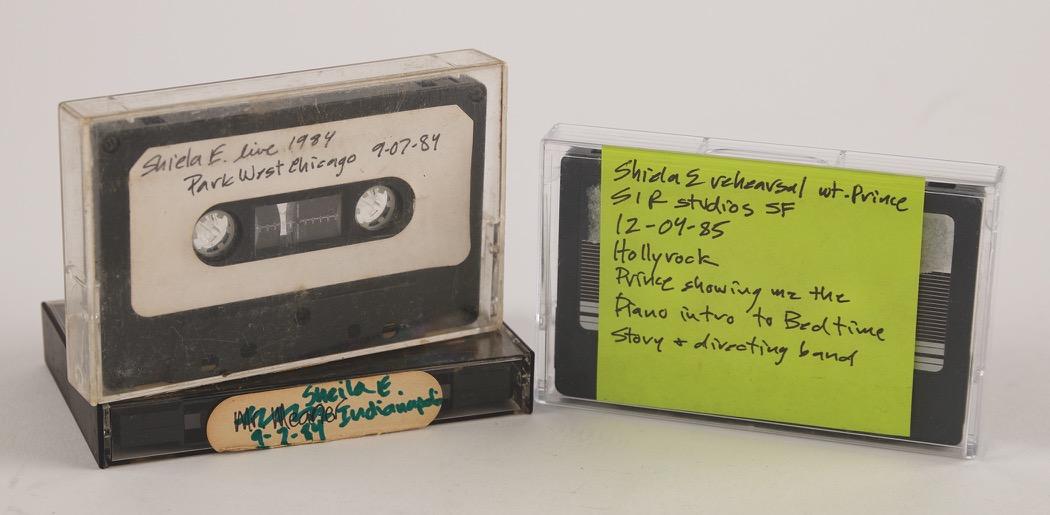 Shiela E. live 1984
Park West Chicago 9-07-84
Sheila E.
Indianapolis
9-2-84
Shiela E rehearsal wt. Prince
SIR studios SF
12-04-85
Hollyrock
Prince showing me the
Piano intro to Bedtime
Story + directing band